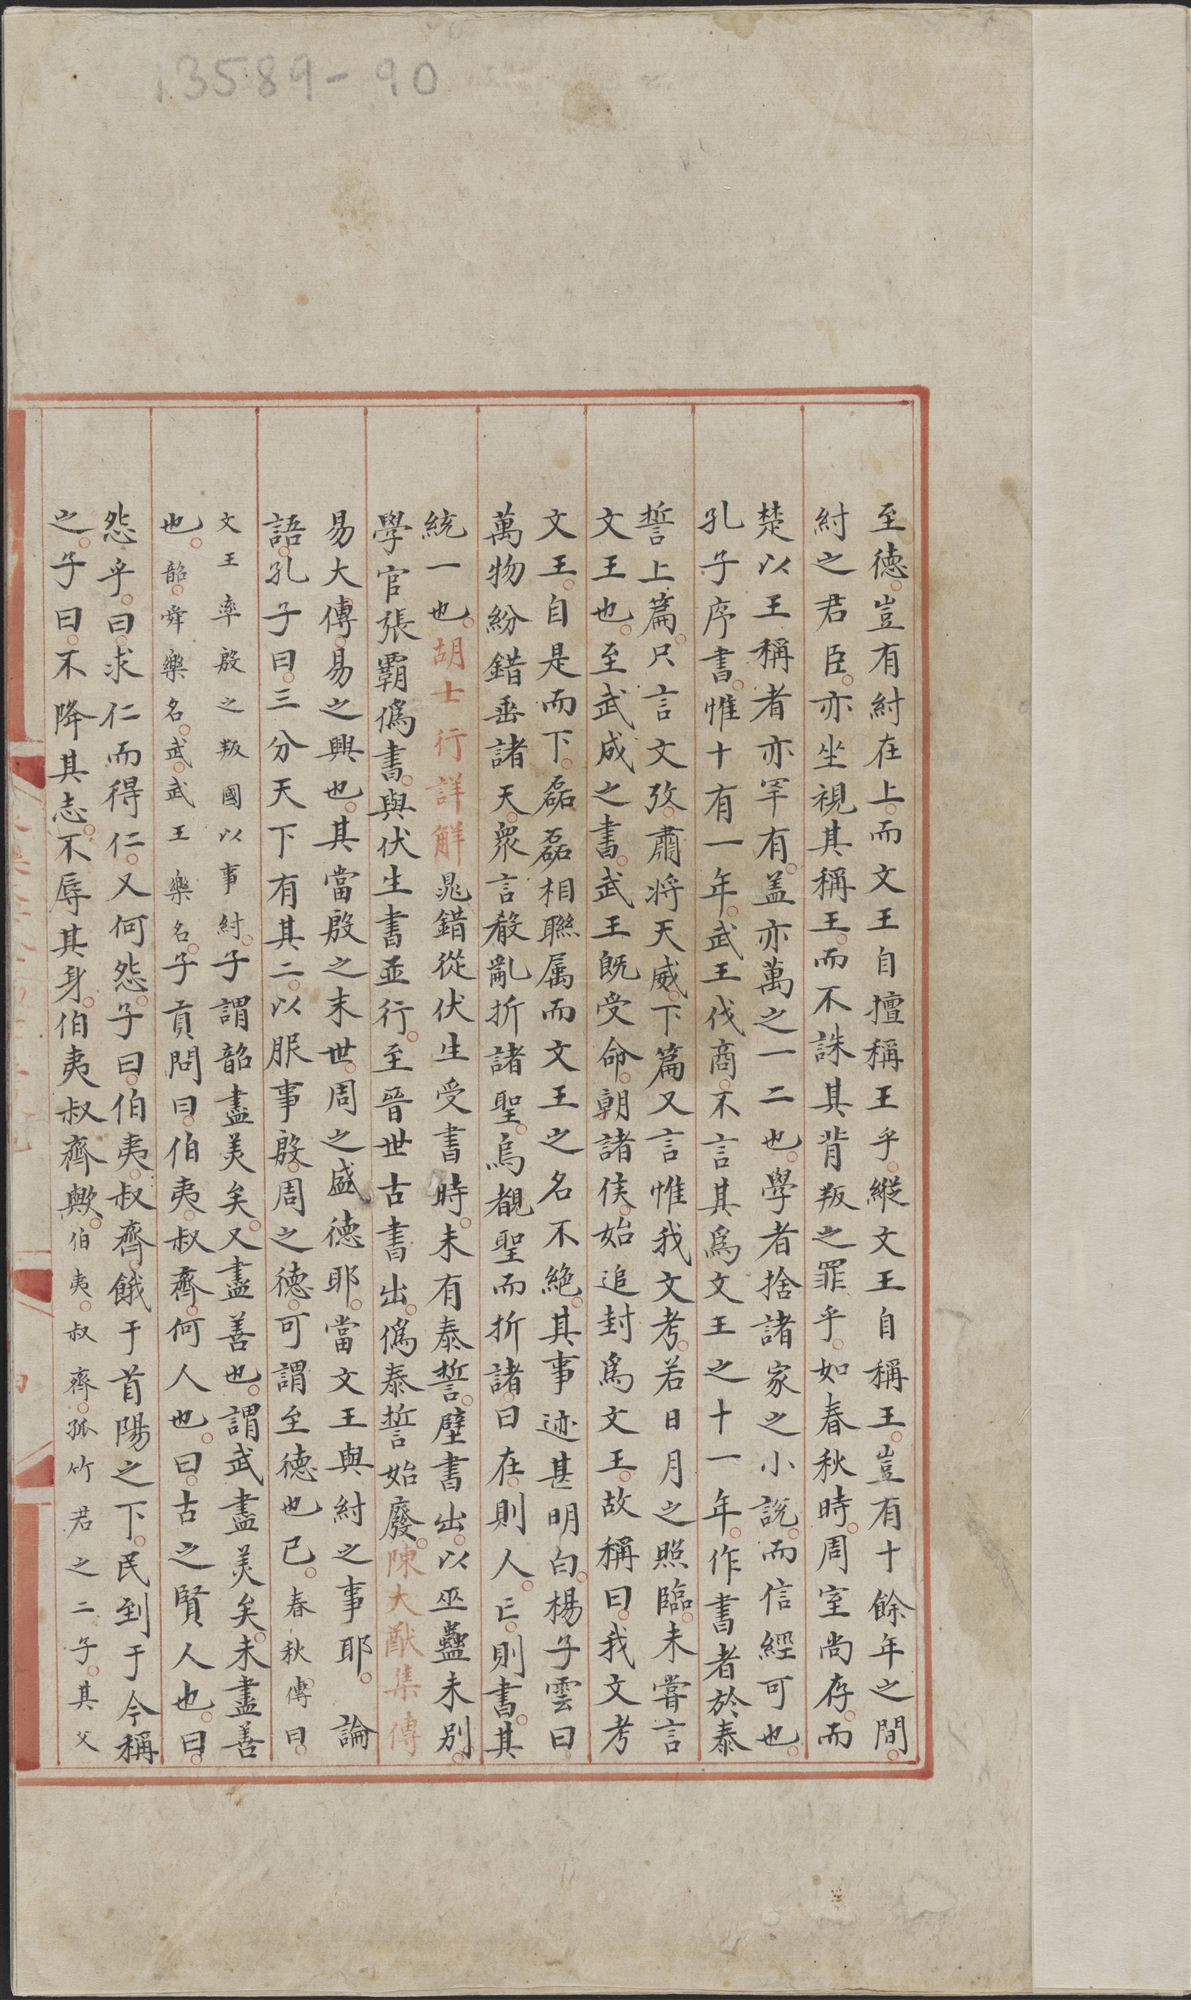 13589-90
至德。豈有紂在上。而文王自擅稱王乎。縱文王自稱王。豈有十餘年之間。
紂之君臣。亦坐視其稱王。而不誅其背叛之罪乎。如春秋時。周室尚存。而
楚以王稱者亦罕有。盖亦萬之一二也。學者捨諸家之小說。而信經可也。
孔子序書。惟十有一年。武王伐商。不言其爲文王之十一年。作書者於泰
誓上篇。只言文攷。肅將天威。下篇又言惟我文考。若日月之照臨。未嘗言
文王也。至武成之書。武王既受命。朝諸侯。始追封爲文王。故稱曰。我文考
文王。自是而下。磊磊相聯属而文王之名不絶。其事迹甚明白。楊子雲曰
萬物紛錯垂諸天。衆言殽亂折諸聖。烏覩聖而折諸。曰在。則人。亡。則書。其
統一也。胡士行詳觧晁錯從伏生受書時。未有泰誓。壁書出。以巫蠱未別。
學官張霸僞書。與伏生書並行。至晉世古書出。僞泰誓始廢。陳大猷集傳
易大傳。易之興也。其當殷之末世。周之盛德耶。當文王與紂之事耶。論
語。孔子曰。三分天下有其二。以服事殷。周之德。可謂至德也已。春秋傳曰。
文王率殷之叛國以事紂。子謂韶盡美矣。又盡善也。謂武盡美矣。未盡善
也。韶。舜樂名。武。武王樂名。子貢問曰。伯夷。叔齊。何人也。曰。古之賢人也。曰。
怨乎。曰。求仁而得仁。又何怨。子曰。伯夷。叔齊。餓于首陽之下。民到于今稱
之。子曰。不降其志。不辱其身。伯夷叔齊歟。伯夷。叔齊。孤竹君之二子。其父